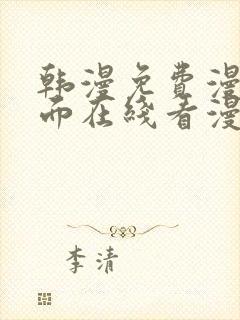 韩漫免费漫
而在线看漫
李清